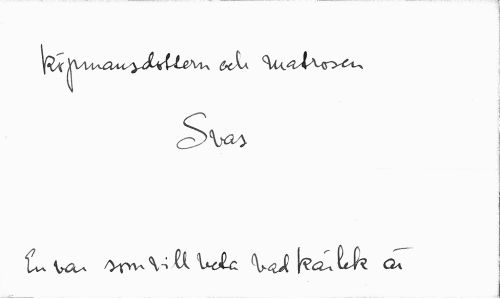 Köpmansdottern och matrosen
Svas
En var som vill veta vad kärlek är